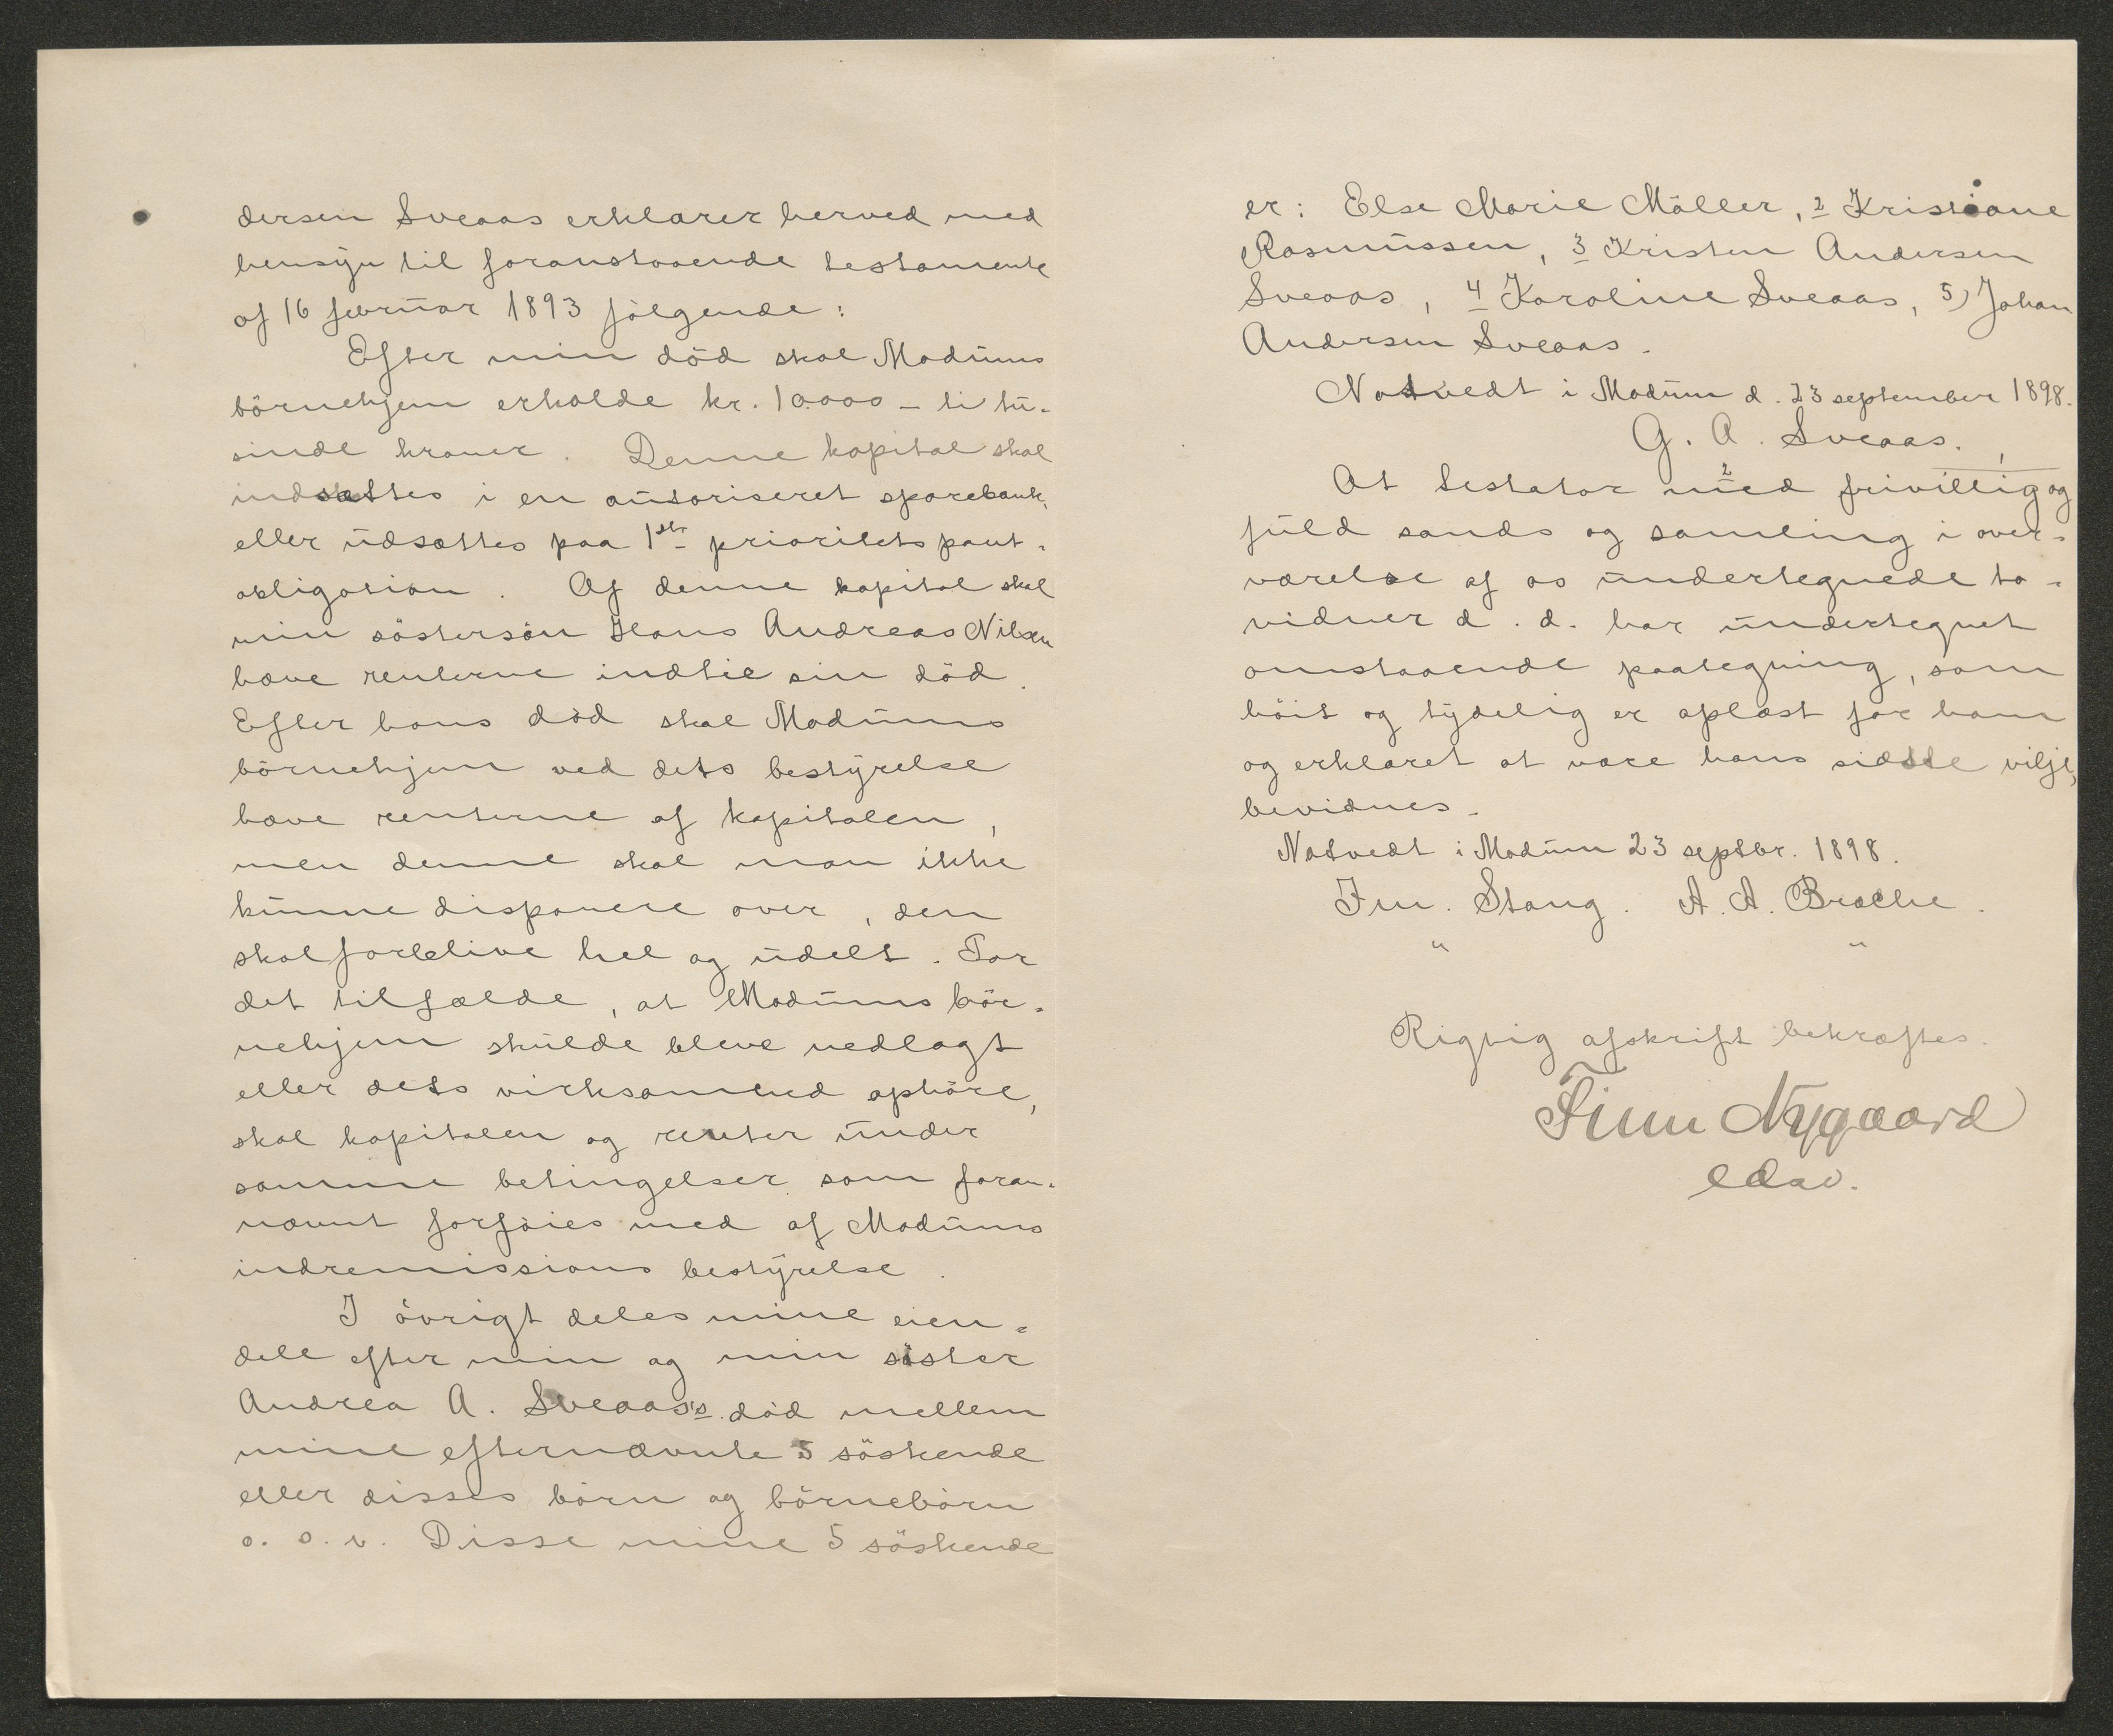 dersen Sveaas erklærer herved med
hensyn til foranstaaende testamente
af 16 februar 1893 følgende:
Efter min död skal Modums
börnehjem erholde kr. 10000 - ti tu-
sinde kroner. Denne kapital skal
indsættes i en autoriseret sparebank,
eller udsættes paa 1ste prioritets pant-
obligation. Af denne kapital skal
min söstersön Hans Andreas Nilsen
hæve renterne indtil sin död.
Efter hans död skal Modums
börnehjem ved dets bestyrelse
hæve renterne af kapitalen,
men denne skal man ikke
kunne disponere over, den
skal forblive hel og udelt. For
det tilfælde, at Modums bör-
nehjem skulde bleve nedlagt
eller dets virksomhed ophöre,
skal kapitalen og renter under
samme betingelser som foran-
nævnt forföies med af Modums
indremissions bestyrelse.
I övrigt deles mine eien-
dele efter min og min söster
Andrea A. Sveaas's död mellem
mine efternævnte 5 söskende
eller disses börn og börnebörn
o. s. v. Disse mine 5 söskende
er: Else Marie Möller, 2 Kristiane
Rasmussen, 3 Kristen Andersen
Sveaas, 4 Karoline Sveaas, 5) Johan
Andersen Sveaas.
Natvedt i Modum d. 23 september 1898.
G. A. Sveaas.
At testator med frivillig og
fuld sands og samling i over-
værelse af os undertegnede to-
vidner d. d. har undertegnet
omstaaende paategning, som
höit og tydelig er oplæst for ham
og erklæret at være hans sidste vilje,
bevidnes.
Natvedt i Modum 23 septbr. 1898.
Im. Stang. A. A. Bræche.
" "
Rigtig afskrift bekræftes.
Finn Nygaard
edsv.